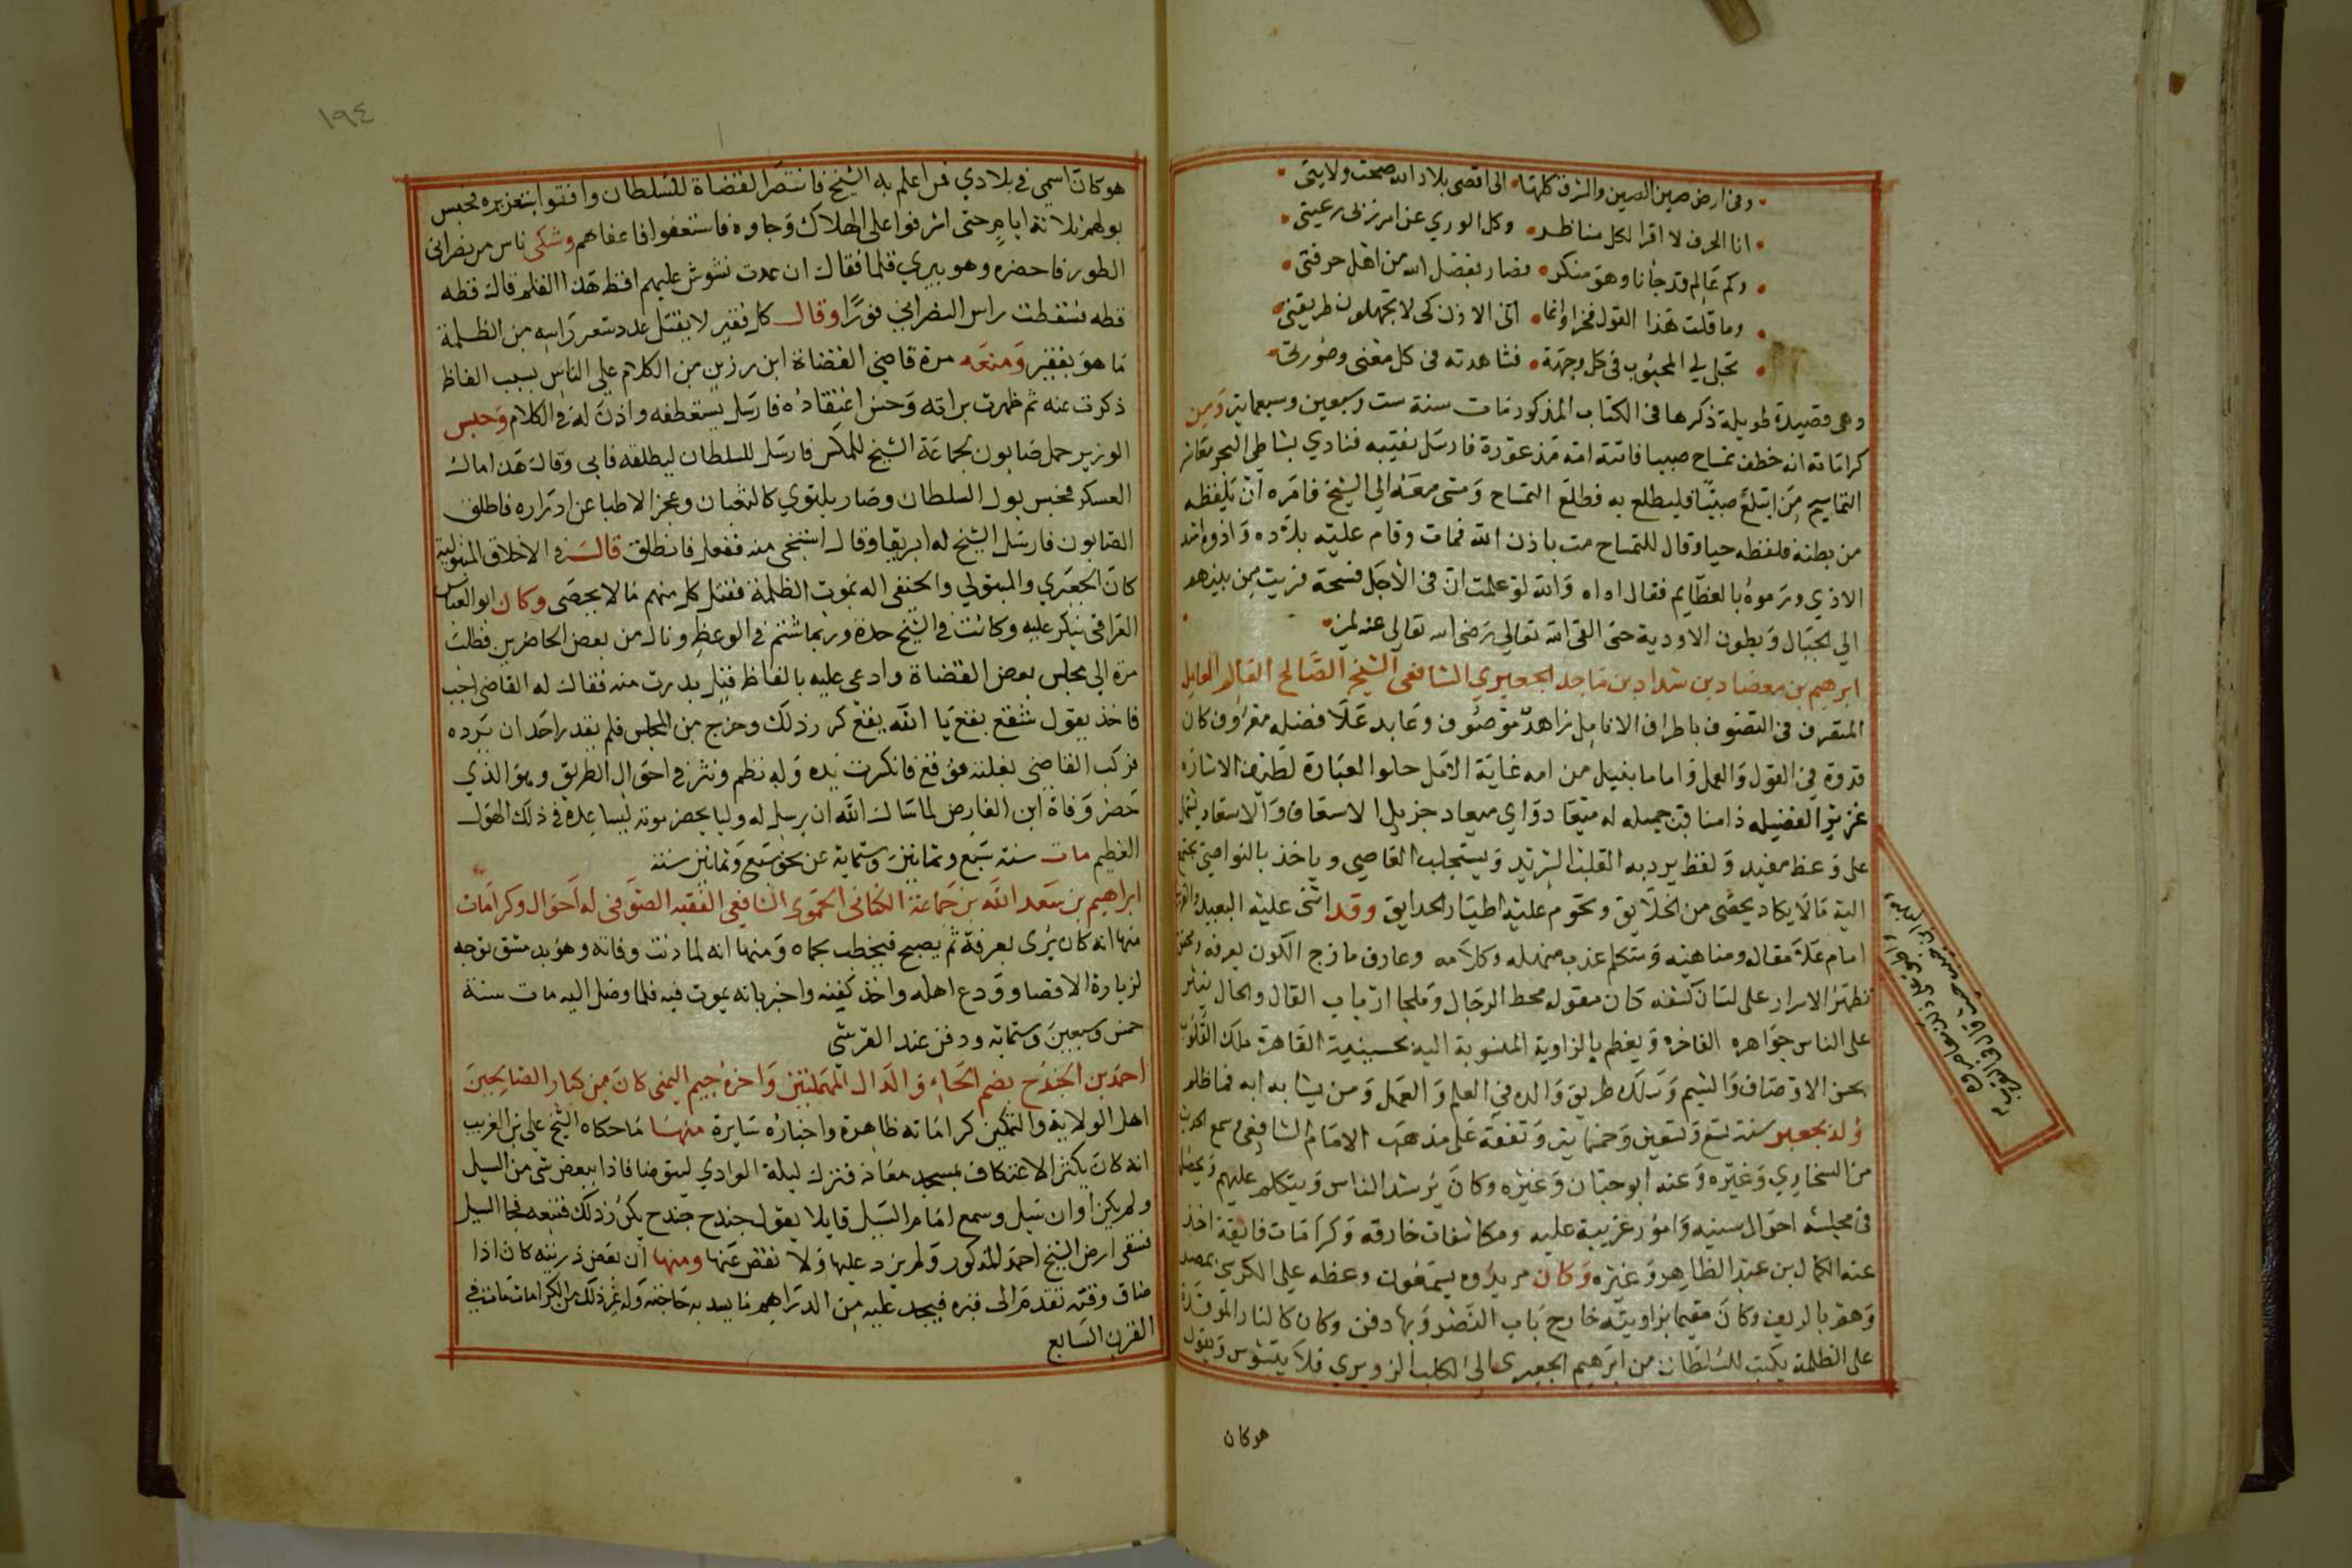 وفى ارض صين الصين والشرق كلها • الى اقصى بلاد الله صحت ولايتى •
• انا الحرف لا اقرا لكل مناظر • وكل الورى عن امر ربى رعيتى •
• وكم عالم قد جانا وهو منكر • فصار بفضل الله من اهل حرفتى •
• وما قلت هذا القول فخرا وانما • اتى الاذن كى لا تجهلون طريقتى •
• تجلى لي المحبوب فى كل وجهة • فشاهدته فى كل معنى وصورتى •
وهى قصيدة طويلة ذكرها فى الكتاب المذكور مات سنة ست وسبعين وسبعماية ومن
كراماته انه خطف تمساح صبيا فاتته امه مذعورة فارسل نقيبه فنادي بشاطي البحر معاشر
التماسيح من ابتلع صبيا فليطلع به فطلع التمساح ومشى معه الي الشيخ فامره ان يلفظه
من بطنه فلفظه حيا وقال للتمساح مت باذن الله فمات وقام عليه بلاده واذوه اشد
الاذي ورموه بالعظايم فقال اواه والله لو علمت ان فى الاجل فسحة فريت من بينهم
الي الجبال وبطون الاودية حتى القى الله تعالي رضى الله تعالى عنه
ابرهيم بن معضاد بن شداد بن ماجد الجعبري الشافعى الشيخ الصالح العالم العامل
المتصرف فى التصوف باطراف الانامل زاهد موصوف وعابد علا فضله معروف كان
قدوة في القول والعمل واماما بنيل من امه غاية الامل حلوا العبارة لطيف الاشاره
غزير الفضيله ذا مناقب جميله له ميعاد واي ميعاد جزيل الاسعاف والاسعاد يشتمل
على وعظ مفيد ولفظ يرد به القلب الشريد ويستجلب القاصي وياخذ بالنواصي يجتمع
اليه مالا يكاد يحصى من الخلايق وتحوم عليه اطيار الحدايق وقد اثنى عليه البعيد والقريب
امام علا مقاله ومناهيه ومتكلم عذب منهله وكلامه وعارف مازج الكون بعرفه
تظهر الاسرار على لسان كشفه كان مقوله محط الرجال وملجا ارباب القال والحال ينثر
على الناس جواهره الفاخره ويعظم بالزاوية المنسوبة اليه بحسينية القاهرة ملك القلوب
بحسن الاوصاف والشيم وسلك طريق والده في العلم والعمل ومن يشابه ابه فما ظلم
ولد بجعبر سنة تسع وتسعين وخمسماية وتفقه على مذهب الامام الشافعى وسمع الحديث
من السخاوي وغيره وعنه ابو حيان وغيره وكان يرشد الناس ويتكلم عليهم ويحصل
فى مجلسه احوال سنيه وامور غريبة عليه ومكاشفات خارقه وكرامات فايقة اخذ
عنه الكمال بن عبد الظاهر وغيره وكان مريدوه يسمعون وعظه على الكرسي بمصر
وهو بالريف وكان مقيما بزاويته خارج باب النصر وبها دفن وكان كالنار الموقدة
على الظلمة يكتب للسلطان من ابرهيم الجعبرى الى الكلب الزويري فلا يتشوش ويقول
هوكان
١٩٤
هو كان اسمى فى بلادي فمن اعلم به الشيخ فانتصر القضاة للسلطان وافتوا بتعزيره فحبس
بولهم ثلاثة ايام حتى اشرفوا على الهلاك وجاوه فاستغفوا فاعفاهم وشكى ناس من نصرانى
الطور فاحضره وهو يبري قلما فقال ان عدت تشوش عليهم اقط هذا القلم قال قطه
قطه فسقطت راس النصراني فورا وقال كل فقير لا يقتل عدد شعر راسه من الظلمة
ما هو بفقير ومنعه مرة قاضي القضاة ابن رزين من الكلام على الناس بسبب الفاظ
ذكرت عنه ثم ظهرت براته وحسن اعتقاده فارسل يستعطفه واذن له في الكلام وحبس
الوزير حمل صابون لجماعة الشيخ للمكس فارسل للسلطان ليطلقه فابى وقال هذا مال
العسكر فحبس بول السلطان وصار يلتوي كالثعبان وعجز الاطبا عن ادراره فاطلق
الصابون فارسل الشيخ له ابريقا وقال استنجى منه ففعل فانطلق قال في الاخلاق المتبولية
كان الجعبري والمتبولي والحنفى اله بموت الظلمة فقتل كل منهم ما لا يحصى وكان ابو العباس
القرافى ينكر عليه وكانت في الشيخ حدة وربما شتم في الوعظ ونال من بعض الحاضرين فطلب
مرة الى مجلس بعض القضاة وادعى عليه بالفاظ قيل بدرت منه فقال له القاضى اجب
فاخذ يقول شقع بقع يا الله يقع كرر ذلك وخرج من المجلس فلم يقدر احد ان يرده
فركب القاضي بغلته فوقع فانكسرت يده وله نظم ونثر في احوال الطريق وهو الذي
حضر وفاة ابن الفارض لما سال الله ان يرسل له وليا يحضر موته ليساعده فى ذلك الهول
العظيم مات سنة سبع وثمانين وستماية عن نحو سبع وثمانين سنة
ابراهيم بن سعد الله بن جماعة الكنانى الحموى الشافعى الفقيه الصوفى له احوال وكرامات
منها انه كان يرى بعرفة ثم يصبح فيخطب بحماه ومنها انه لما دنت وفاته وهو بدمشق توجه
لزيارة الاقصا وودع اهله واخذ كفنه واخبر بانه يموت فيه فلما وصل اليه مات سنة
خمس وسبعين وستماية ودفن عند القرشى
احمد بن الجندح بضم الحاء والدال المهملتين واخره جيم اليمنى كان من كبار الصالحين
اهل الولاية والتمكين كراماته ظاهرة واخباره سايرة منها ما حكاه الشيخ على بن الغريب
انه كان يكثر الاعتكاف بمسجد معاذ فنزل ليلة الوادي ليتوضا فاذا ببعض شى من السيل
ولم يكن اوان سيل وسمع امام السيل قايلا يقول جندح جندح يكرر ذلك فتبعه فجا السيل
فسقى ارض الشيخ احمد المذكور ولم يزد عليها ولا نقص عنها ومنها ان بعض ذريته كان اذا
ضاق وقته تقدم الى قبره فيجد عليه من الدراهم ما يسد به حاجته وله غير ذلك من الكرامات مات في
القرن السابع